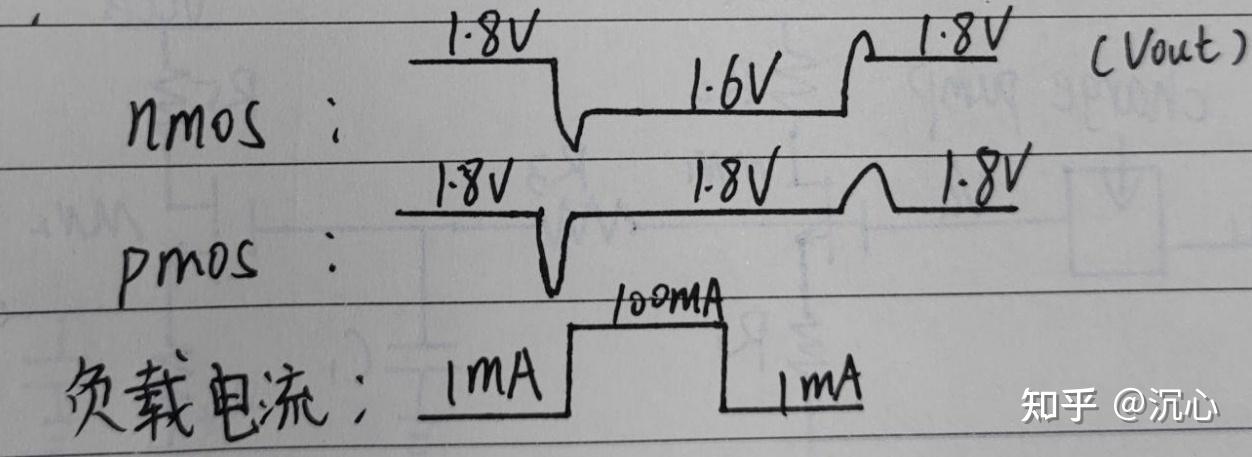 1.8V 1.8V (Vout)
nmos : 1.6V
1.8V 1.8V 1.8V
pmos :
100mA
负载电流 : 1mA 1mA
知乎 @沉心